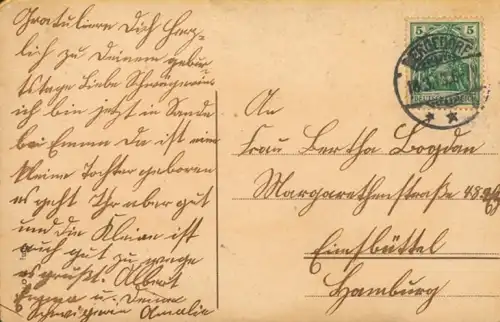 Gratuliere Dich herz-
lich zu Deinem gebur
tstage Liebe Schwägerin
ich bin jetzt in Sande
bei Emma Da ist eine
kleine Tochter geboren
es geht Ihr aber gut
und die Kleine ist
auch gut zu wege
es grüßt. Albert
Emma u. Deine
Schwigerin Amalie
5 5
BERGEDORF
An
Frau Bertha Bogdan
Margarethenstraße 48
Eimsbüttel
Hamburg